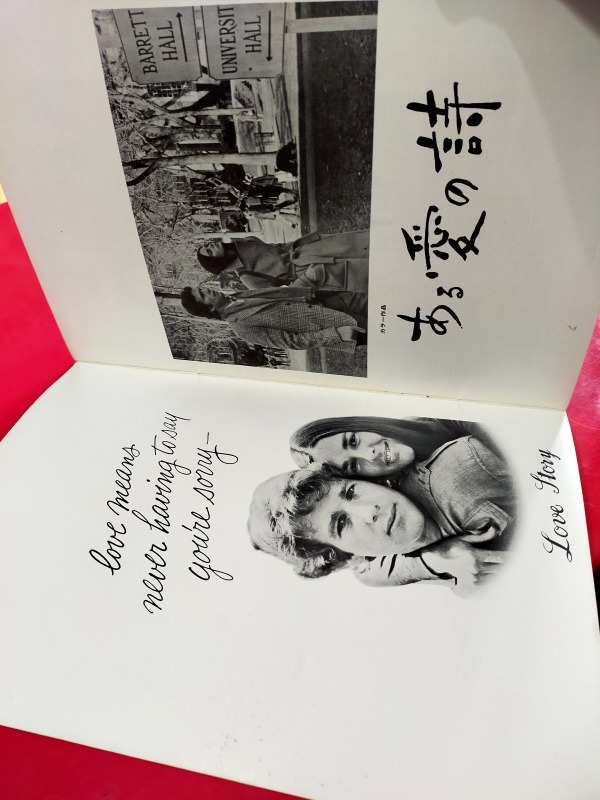 BARRETT
HALL
UNIVERSIT
HALL
ある愛の詩
カラー作品
love means
never having to say
you're sorry—
Love Story